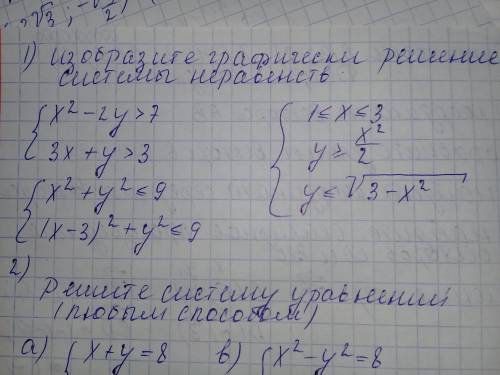 √3; -√1/2)
1) изобразите графически решение
системы неравенств:
{ x² - 2y > 7
3x + y > 3
{ 1 ≤ x ≤ 3
y ≥ x²/2
y ≤ √3 - x²
{ x² + y² ≤ 9
(x-3)² + y² ≤ 9
2)
Решите систему уравнений
(любым способом)
а) { x + y = 8 в) { x² - y² = 8